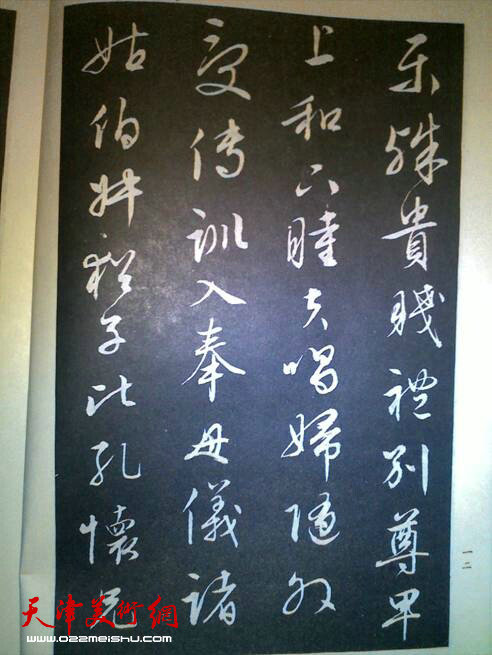 樂殊貴賤禮別尊卑
上和下睦夫唱婦隨外
受傅訓入奉母儀諸
姑伯叔猶子比孔懷兄
一二
天津美術網
www.022meishu.com